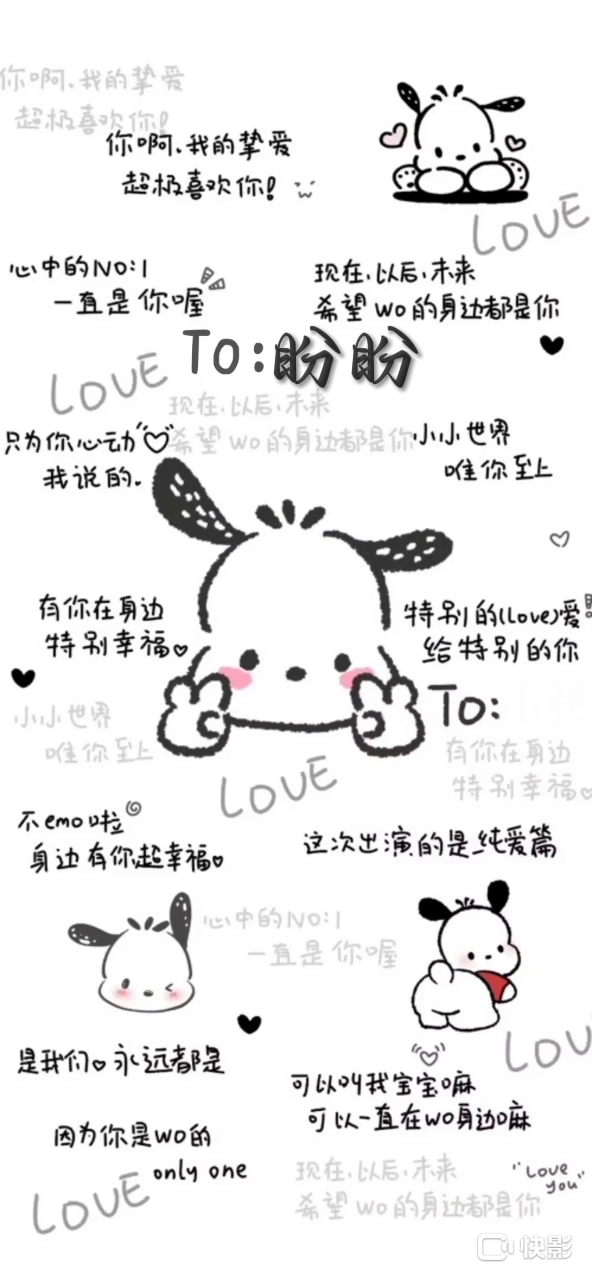 你啊、我的挚爱
超极喜欢你!
你啊、我的挚爱
超极喜欢你!
LOVE
心中的NO:1
一直是你喔
现在、以后、未来
希望wo的身边都是你
To:盼盼
LOVE
现在、以后、未来
希望wo的身边都是你
只为你心动
我说的.
小小世界
唯你至上
有你在身边
特别幸福
特别的(Love)爱
给特别的你
To:
小小世界
唯你至上
有你在身边
特别幸福
LOVE
不emo啦
身边有你超幸福
这次出演的是纯爱篇
心中的NO:1
一直是你喔
LOVE
是我们 永远都是
可以叫我宝宝嘛
可以一直在wo身边嘛
因为你是wo的
only one
LOVE
现在、以后、未来
希望wo的身边都是你
"Love
you"
快影